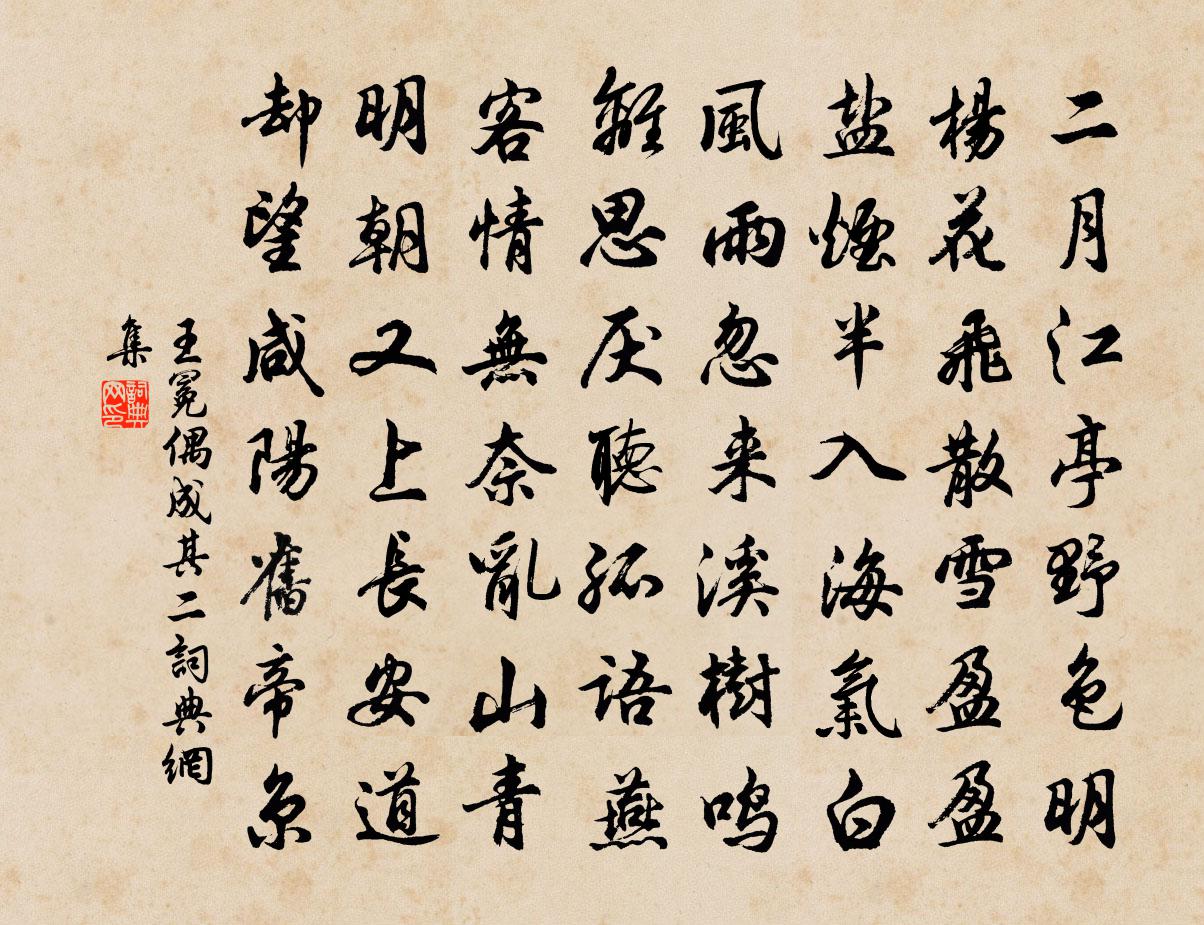 二月江亭野色明
楊花飛散雪盈盈
盐煙半入海氣白
風雨忽来溪樹鳴
離思厌聽孤語燕
客情無奈亂山青
明朝又上長安道
却望咸陽舊帝京
王冕偶成其二詞典網
集
詞典網印